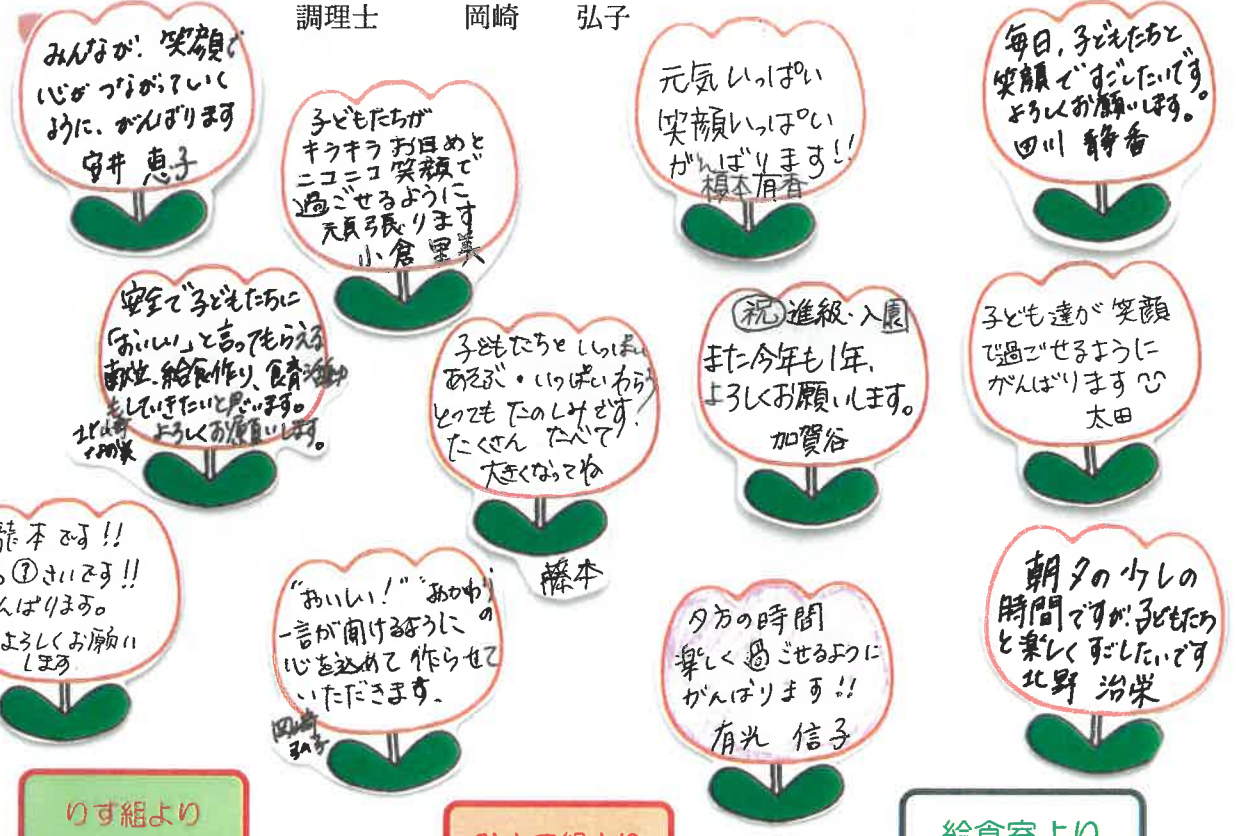 調理士 岡崎 弘子
みんなが、笑顔で
心がつながっていく
ように、がんばります
安井 恵子
子どもたちが
キラキラお目めと
ニコニコ笑顔で
過ごせるように
元気頑張ります
小倉 里美
元気いっぱい
笑顔いっぱい
がんばります!!
榎本有香
毎日、子どもたちと
笑顔ですごしたいです。
よろしくお願いします。
四川 静香
安全で子どもたちに
「おいしい」と言ってもらえる
献立、給食作り、食育活動
もしていきたいと思います。
よろしくお願いします。
子どもたちと いっぱい
あそぶ・いっぱいわらう
とっても たのしみです!
たくさん たべて
大きくなってね
藤本
祝 進級・入園
また今年も1年、
よろしくお願いします。
加賀谷
子ども達が 笑顔
で過ごせるように
がんばります
太田
本です!!
?さいです!!
んばります。
よろしくお願い
します
"おいしい!" "おかわり"の
一言が聞けるように
心を込めて 作らせて
いただきます。
岡崎
弘子
夕方の時間
楽しく過ごせるように
がんばります!!
有光 信子
朝夕の少しの
時間ですが、子どもたち
と楽しくすごしたいです
北野 治栄
りす組より
給食室より